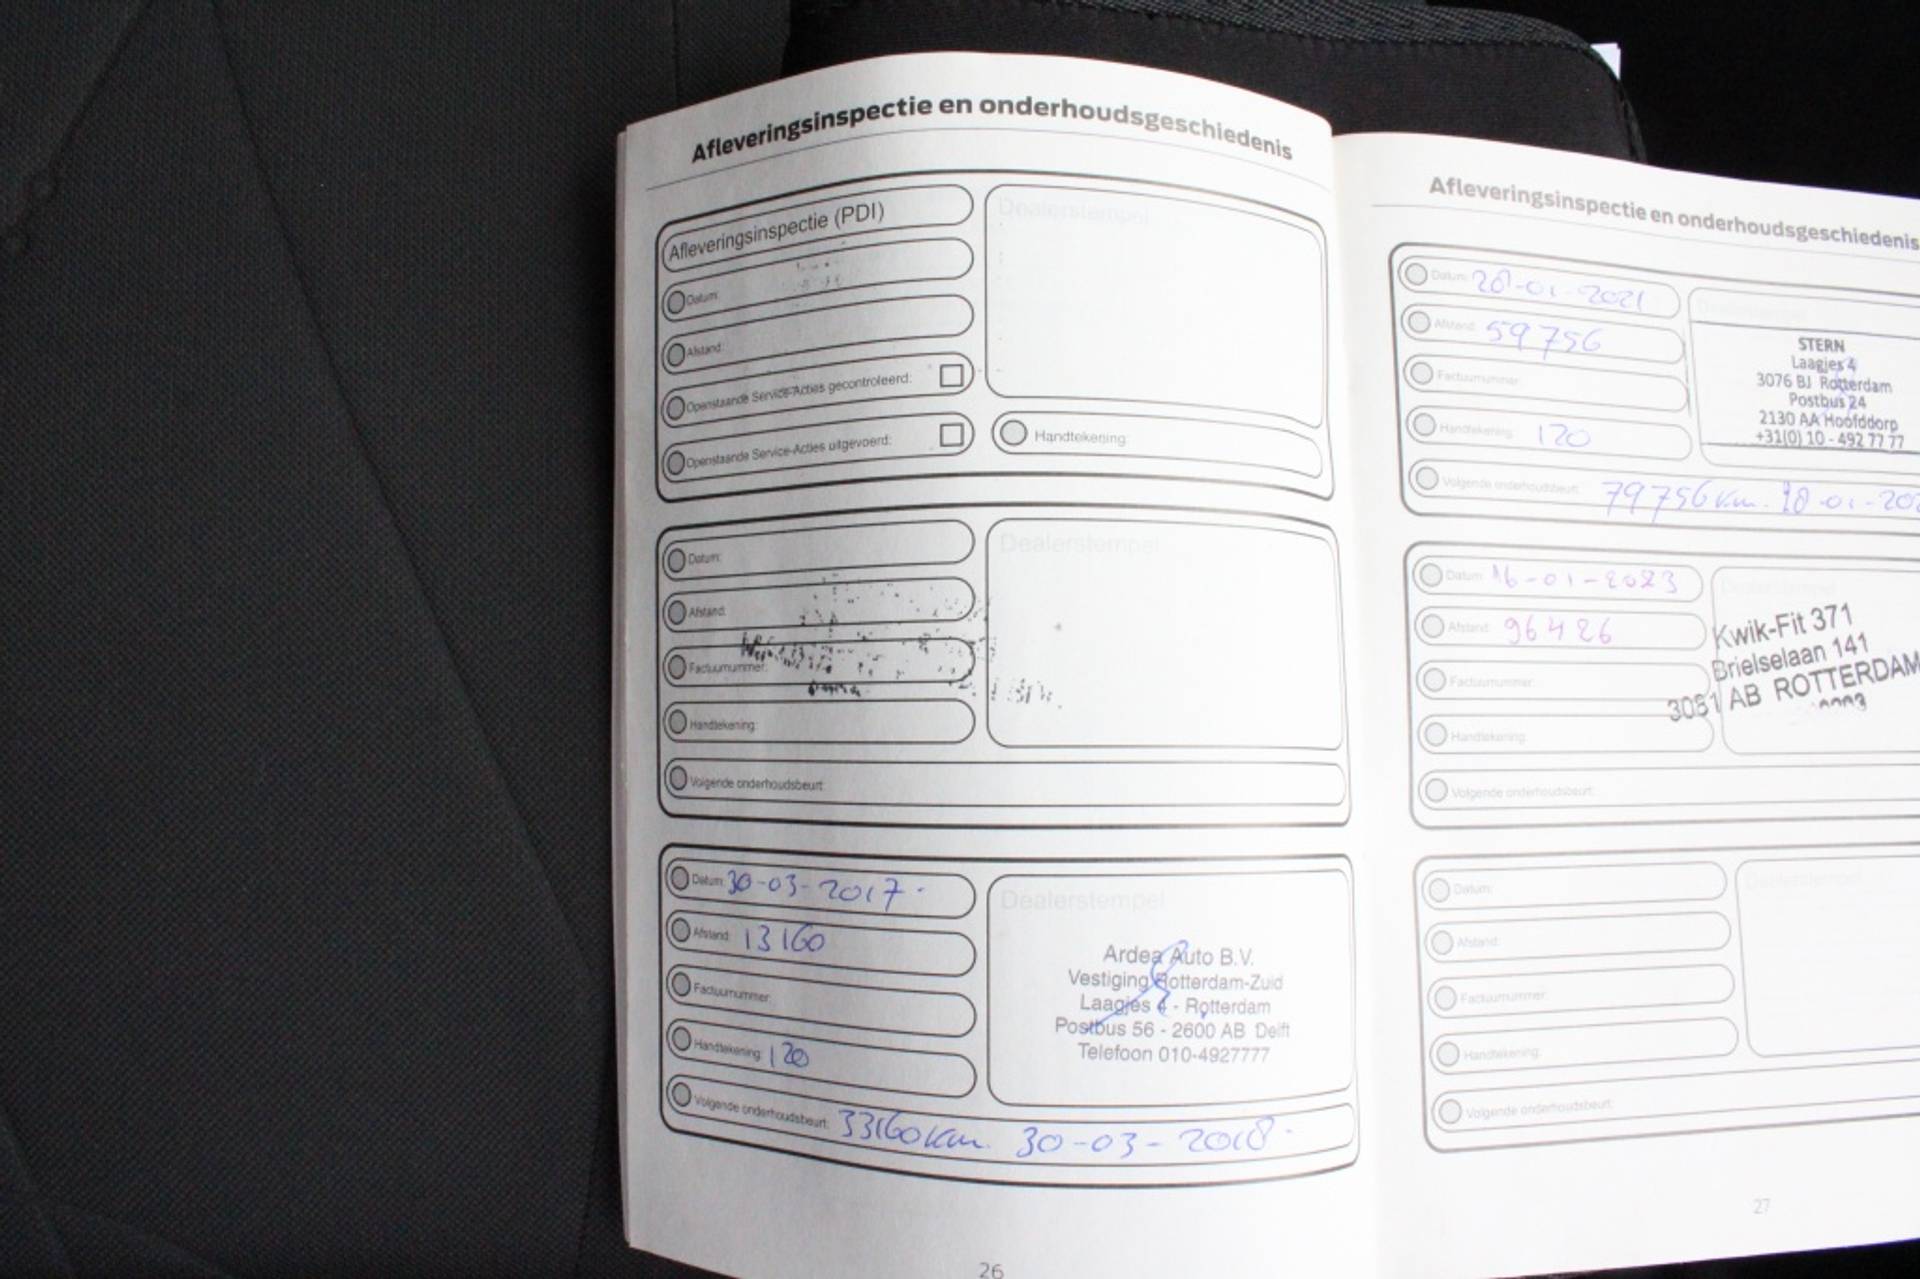 Afleveringsinspectie en onderhoudsgeschiedenis
Afleveringsinspectie (PDI)
Dealerstempel
Datum:
Afstand:
Openstaande Service-Acties gecontroleerd:
Openstaande Service-Acties uitgevoerd:
Handtekening:
Datum:
Dealerstempel
Afstand:
Factuurnummer:
Handtekening:
Volgende onderhoudsbeurt:
Datum: 30-03-2017
Afstand: 13160
Factuurnummer:
Handtekening: 120
Dealerstempel
Ardea Auto B.V.
Vestiging Rotterdam-Zuid
Laagjes 4 - Rotterdam
Postbus 56 - 2600 AB Delft
Telefoon 010-4927777
Volgende onderhoudsbeurt: 33160 km. 30-03-2018
26
Afleveringsinspectie en onderhoudsgeschiedenis
Datum: 28-01-2021
Afstand: 59756
Factuurnummer:
Handtekening: 120
Dealerstempel
STERN
Laagjes 4
3076 BJ Rotterdam
Postbus 24
2130 AA Hoofddorp
+31(0) 10 - 492 77 77
Volgende onderhoudsbeurt: 79756 km.
Datum: 16-01-2023
Afstand: 96426
Factuurnummer:
Handtekening:
Dealerstempel
Kwik-Fit 371
Brielselaan 141
3081 AB ROTTERDAM
Volgende onderhoudsbeurt:
Datum:
Afstand:
Factuurnummer:
Handtekening:
Dealerstempel
Volgende onderhoudsbeurt:
27